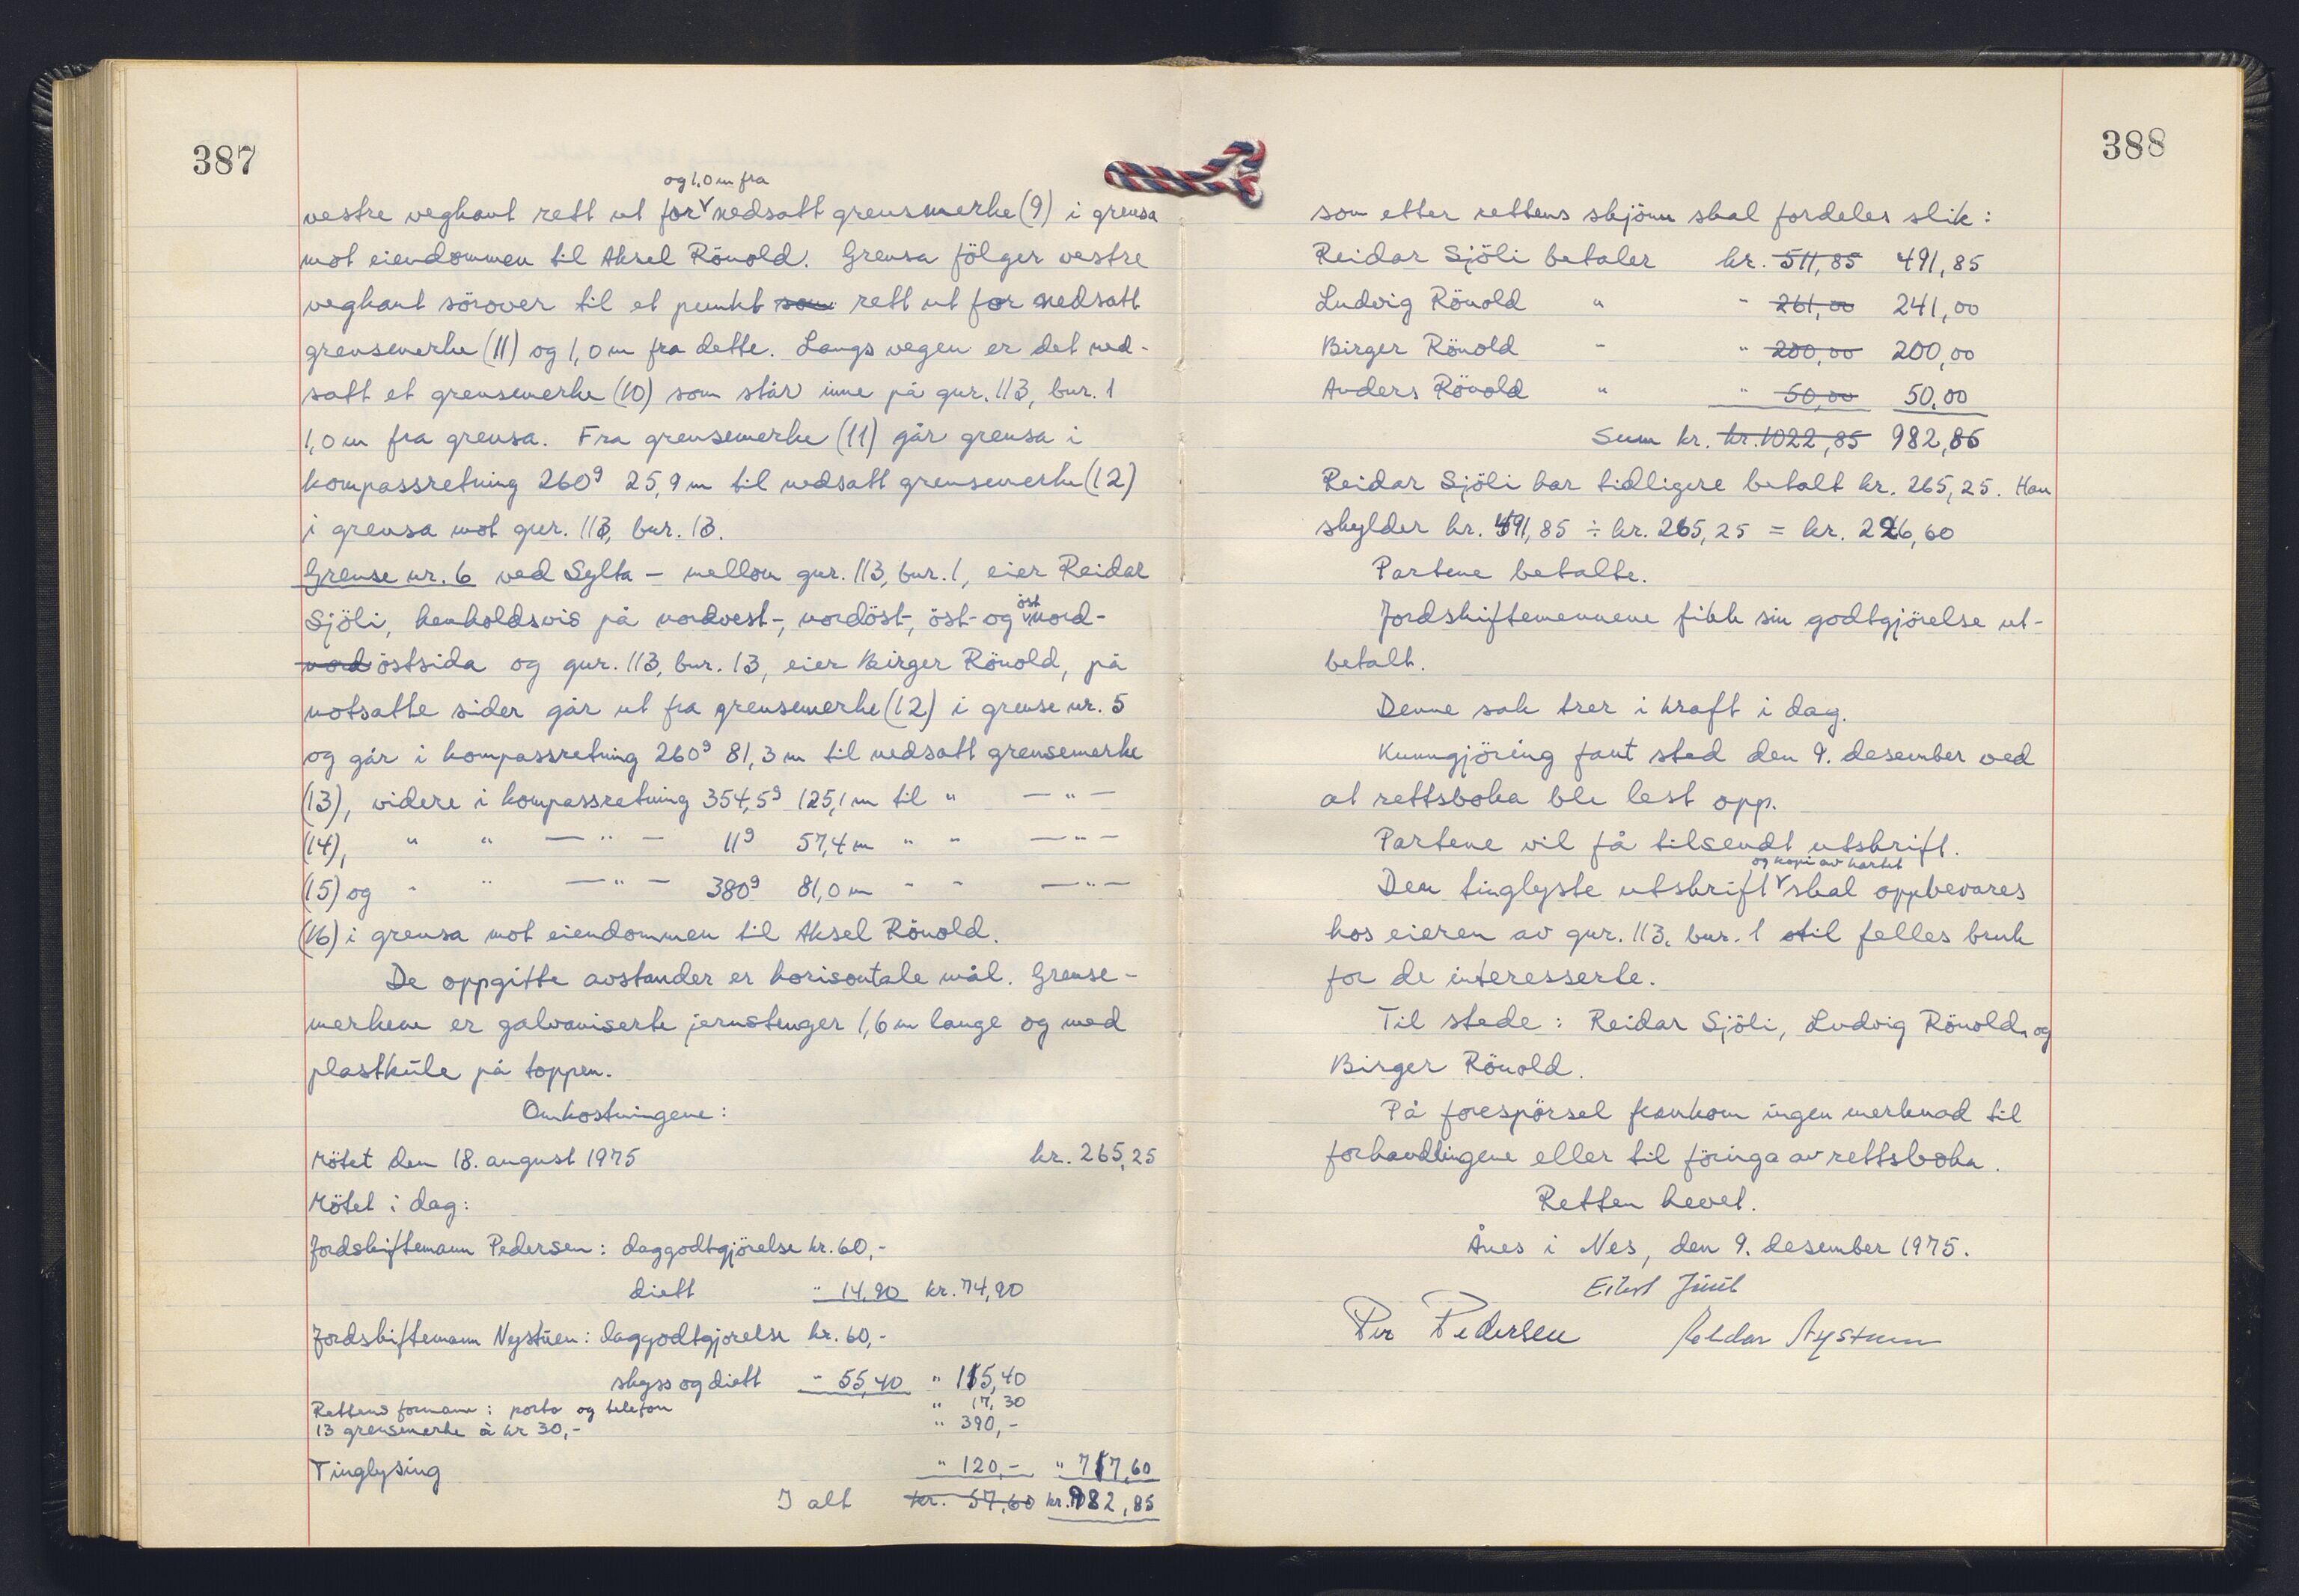 387
og 1,0 m fra
vestre vegkant rett ut for nedsatt grensemerke (9) i grensa
mot eiendommen til Aksel Rönold. Grensa fölger vestre
vegkant sörover til et punkt som rett ut for nedsatt
grensemerke (11) og 1,0 m fra dette. Langs vegen er det ned-
satt et grensemerke (10) som står inne på gnr. 113, bnr. 1
1,0 m fra grensa. Fra grensemerke (11) går grensa i
kompassretning 260g 25,9 m til nedsatt grensemerke (12)
i grensa mot gnr. 113, bnr. 13.
Grense nr. 6 ved Sylta – mellom gnr. 113, bnr. 1, eier Reidar
Sjöli, henholdsvis på nordvest-, nordöst-, öst- og öst nord-
nord östsida og gnr. 113, bnr. 13, eier Birger Rönold, på
motsatte sider går ut fra grensemerke (12) i grense nr. 5
og går i kompassretning 260g 81,3 m til nedsatt grensemerke
(13), videre i kompassretning 354,5g 125,1 m til " — " —
(14), " " — " — 11g 57,4 m " " — " —
(15) og " " — " — 380g 81,0 m " " — " —
(16) i grensa mot eiendommen til Aksel Rönold.
De oppgitte avstander er horisontale mål. Grense-
merkene er galvaniserte jernstenger 1,6 m lange og med
plastkule på toppen.
Omkostningene:
Mötet den 18. august 1975 kr. 265,25
Mötet i dag:
Jordskiftemann Pedersen: daggodtgjörelse kr. 60,-
diett " 14,90 kr. 74,90
Jordskiftemann Nystuen: daggodtgjorelse kr. 60,-
skyss og diett " 55,40 " 115,40
Rettens formann: porto og telefon " 17,30
13 grensemerke à kr 30,- " 390,-
Tinglysing " 120,- " 717,60
I alt kr. 57,60 kr. 982,85
388
som etter rettens skjönn skal fordeles slik:
Reidar Sjöli betaler kr. 511,85 491,85
Ludvig Rönold " " 261,00 241,00
Birger Rönold " " 200,00 200,00
Anders Rönold " " 50,00 50,00
Sum kr. kr. 1022,85 982,85
Reidar Sjöli har tidligere betalt kr. 265,25. Han
skylder kr. 491,85 ÷ kr. 265,25 = kr. 226,60
Partene betalte.
Jordskiftemennene fikk sin godtgjörelse ut-
betalt.
Denne sak trer i kraft i dag.
Kunngjöring fant sted den 9. desember ved
at rettsboka ble lest opp.
Partene vil få tilsendt utskrift.
og kopi av kartet
Den tinglyste utskrift skal oppbevares
hos eieren av gnr. 113, bnr. 1 til felles bruk
for de interesserte.
Til stede: Reidar Sjöli, Ludvig Rönold og
Birger Rönold.
På forespörsel framkom ingen merknad til
forhandlingene eller til föringa av rettsboka.
Retten hevet.
Ånes i Nes, den 9. desember 1975.
Per Pedersen